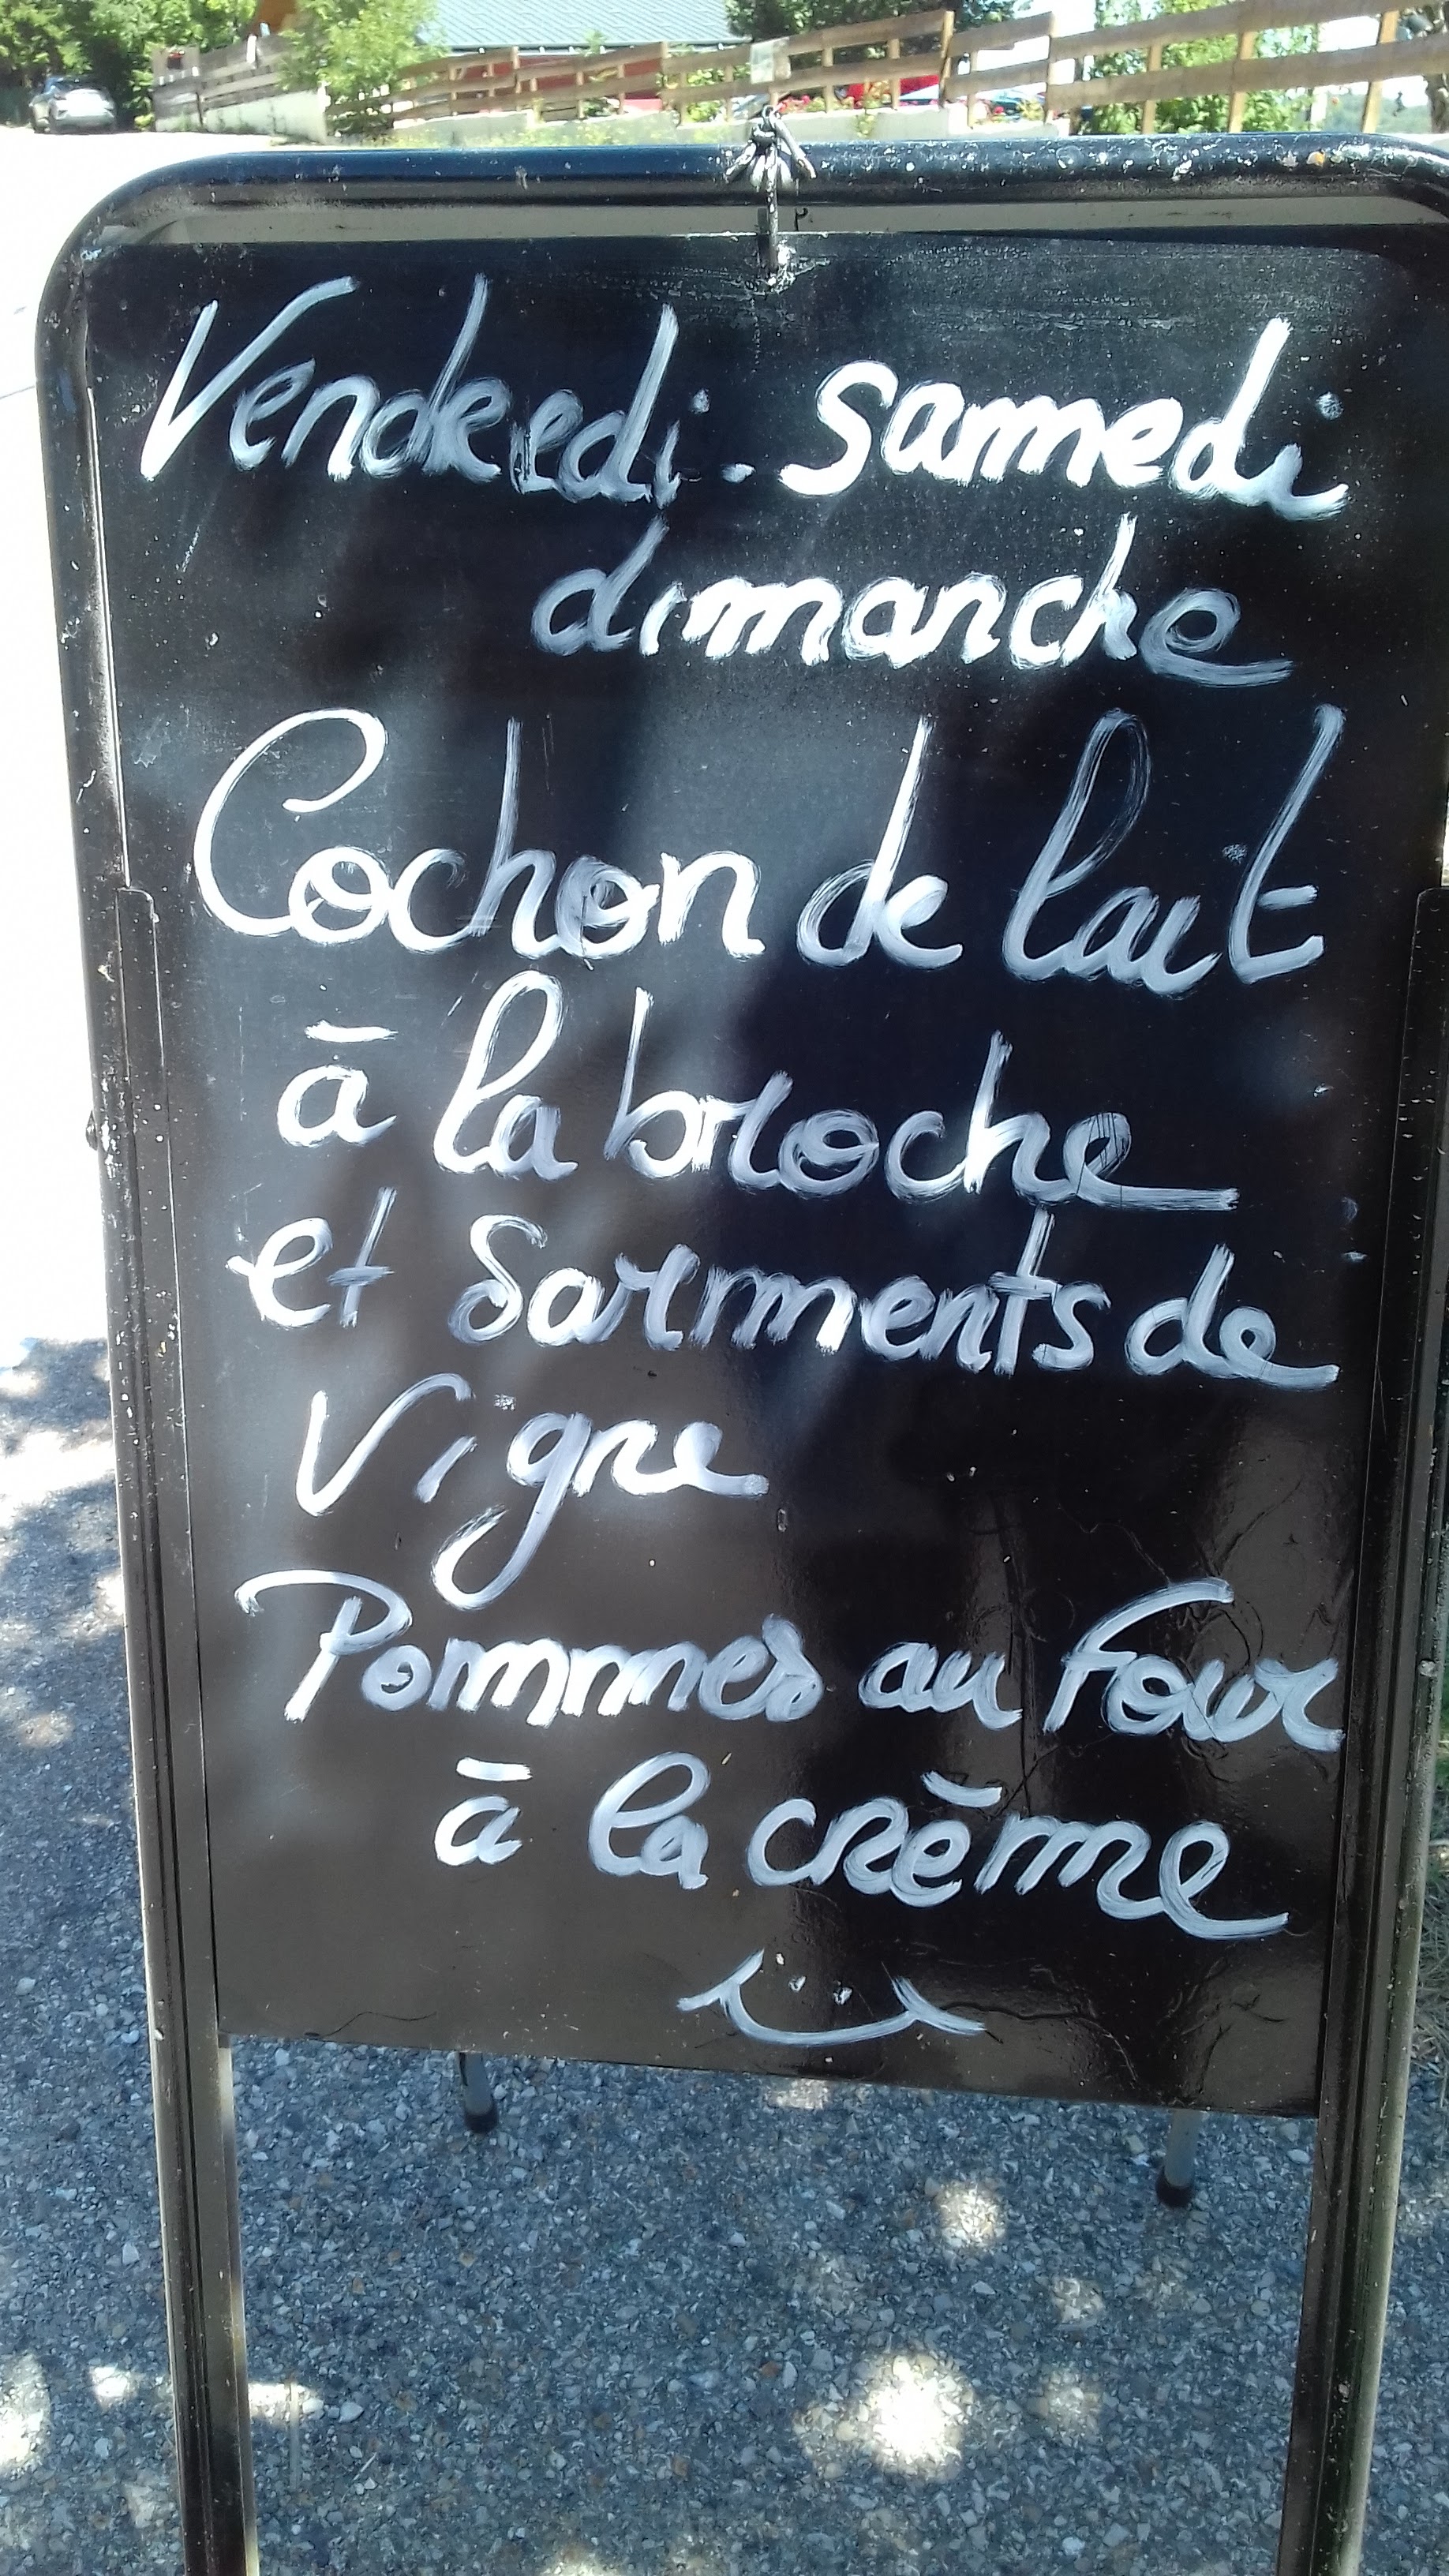 Vendredi. Samedi
dimanche
Cochon de lait
à la broche
et Sarments de
Vigne
Pommes au Four
à la crème